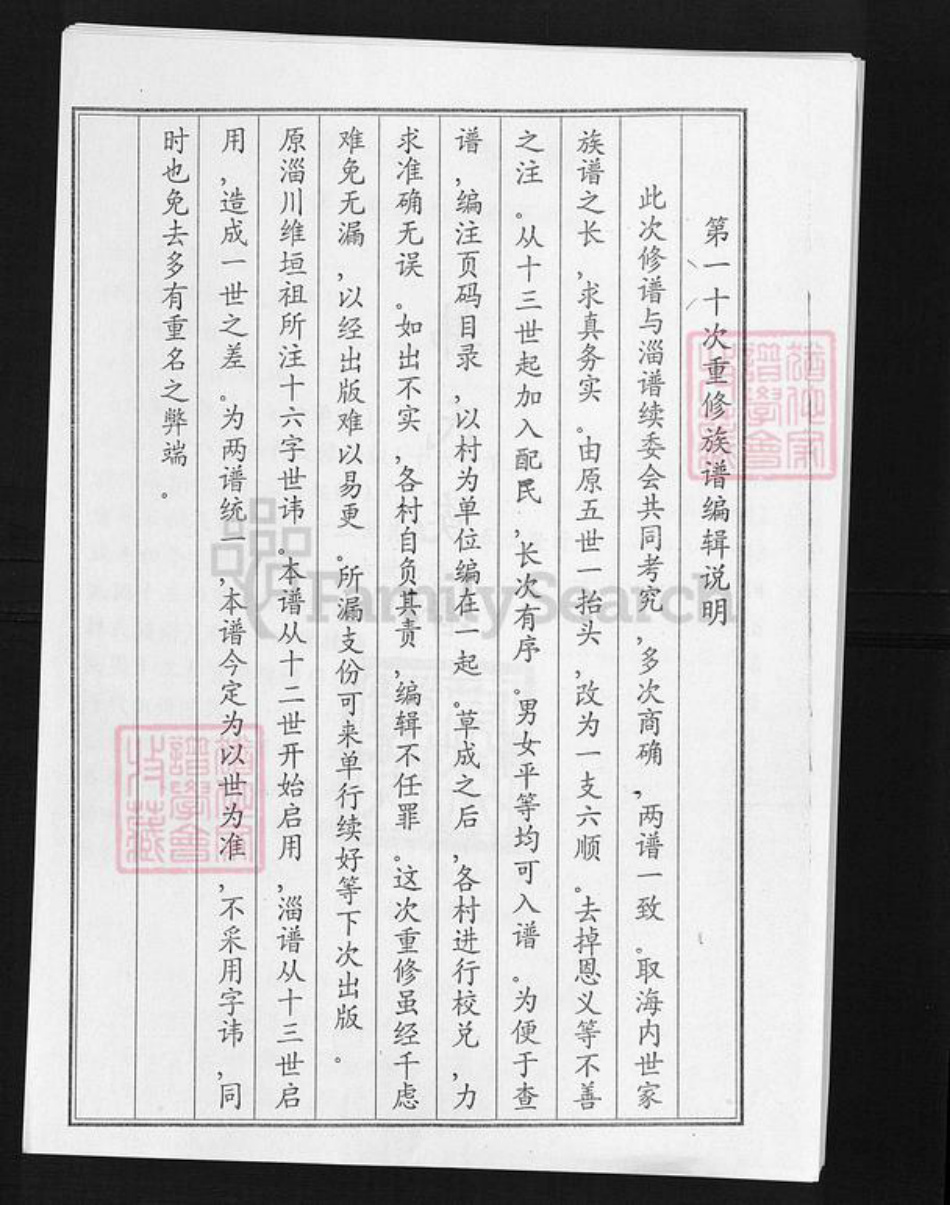 第一十次重修族谱编辑说明
此次修谱与淄谱续委会共同考究,多次商确,两谱一致。取海内世家
族谱之长,求真务实。由原五世一抬头,改为一支六顺。去掉恩义等不善
之注。从十三世起加入配民,长次有序。男女平等均可入谱。为便于查
谱,编注页码目录,以村为单位编在一起。草成之后,各村进行校兑,力
求准确无误。如出不实,各村自负其责,编辑不任罪。这次重修虽经千虑
难免无漏,以经出版难以易更。所漏支份可来单行续好等下次出版。
原淄川维垣祖所注十六字世讳。本谱从十二世开始启用,淄谱从十三世启
用,造成一世之差。为两谱统一,本谱今定为以世为准,不采用字讳,同
时也免去多有重名之弊端。
FamilySearch